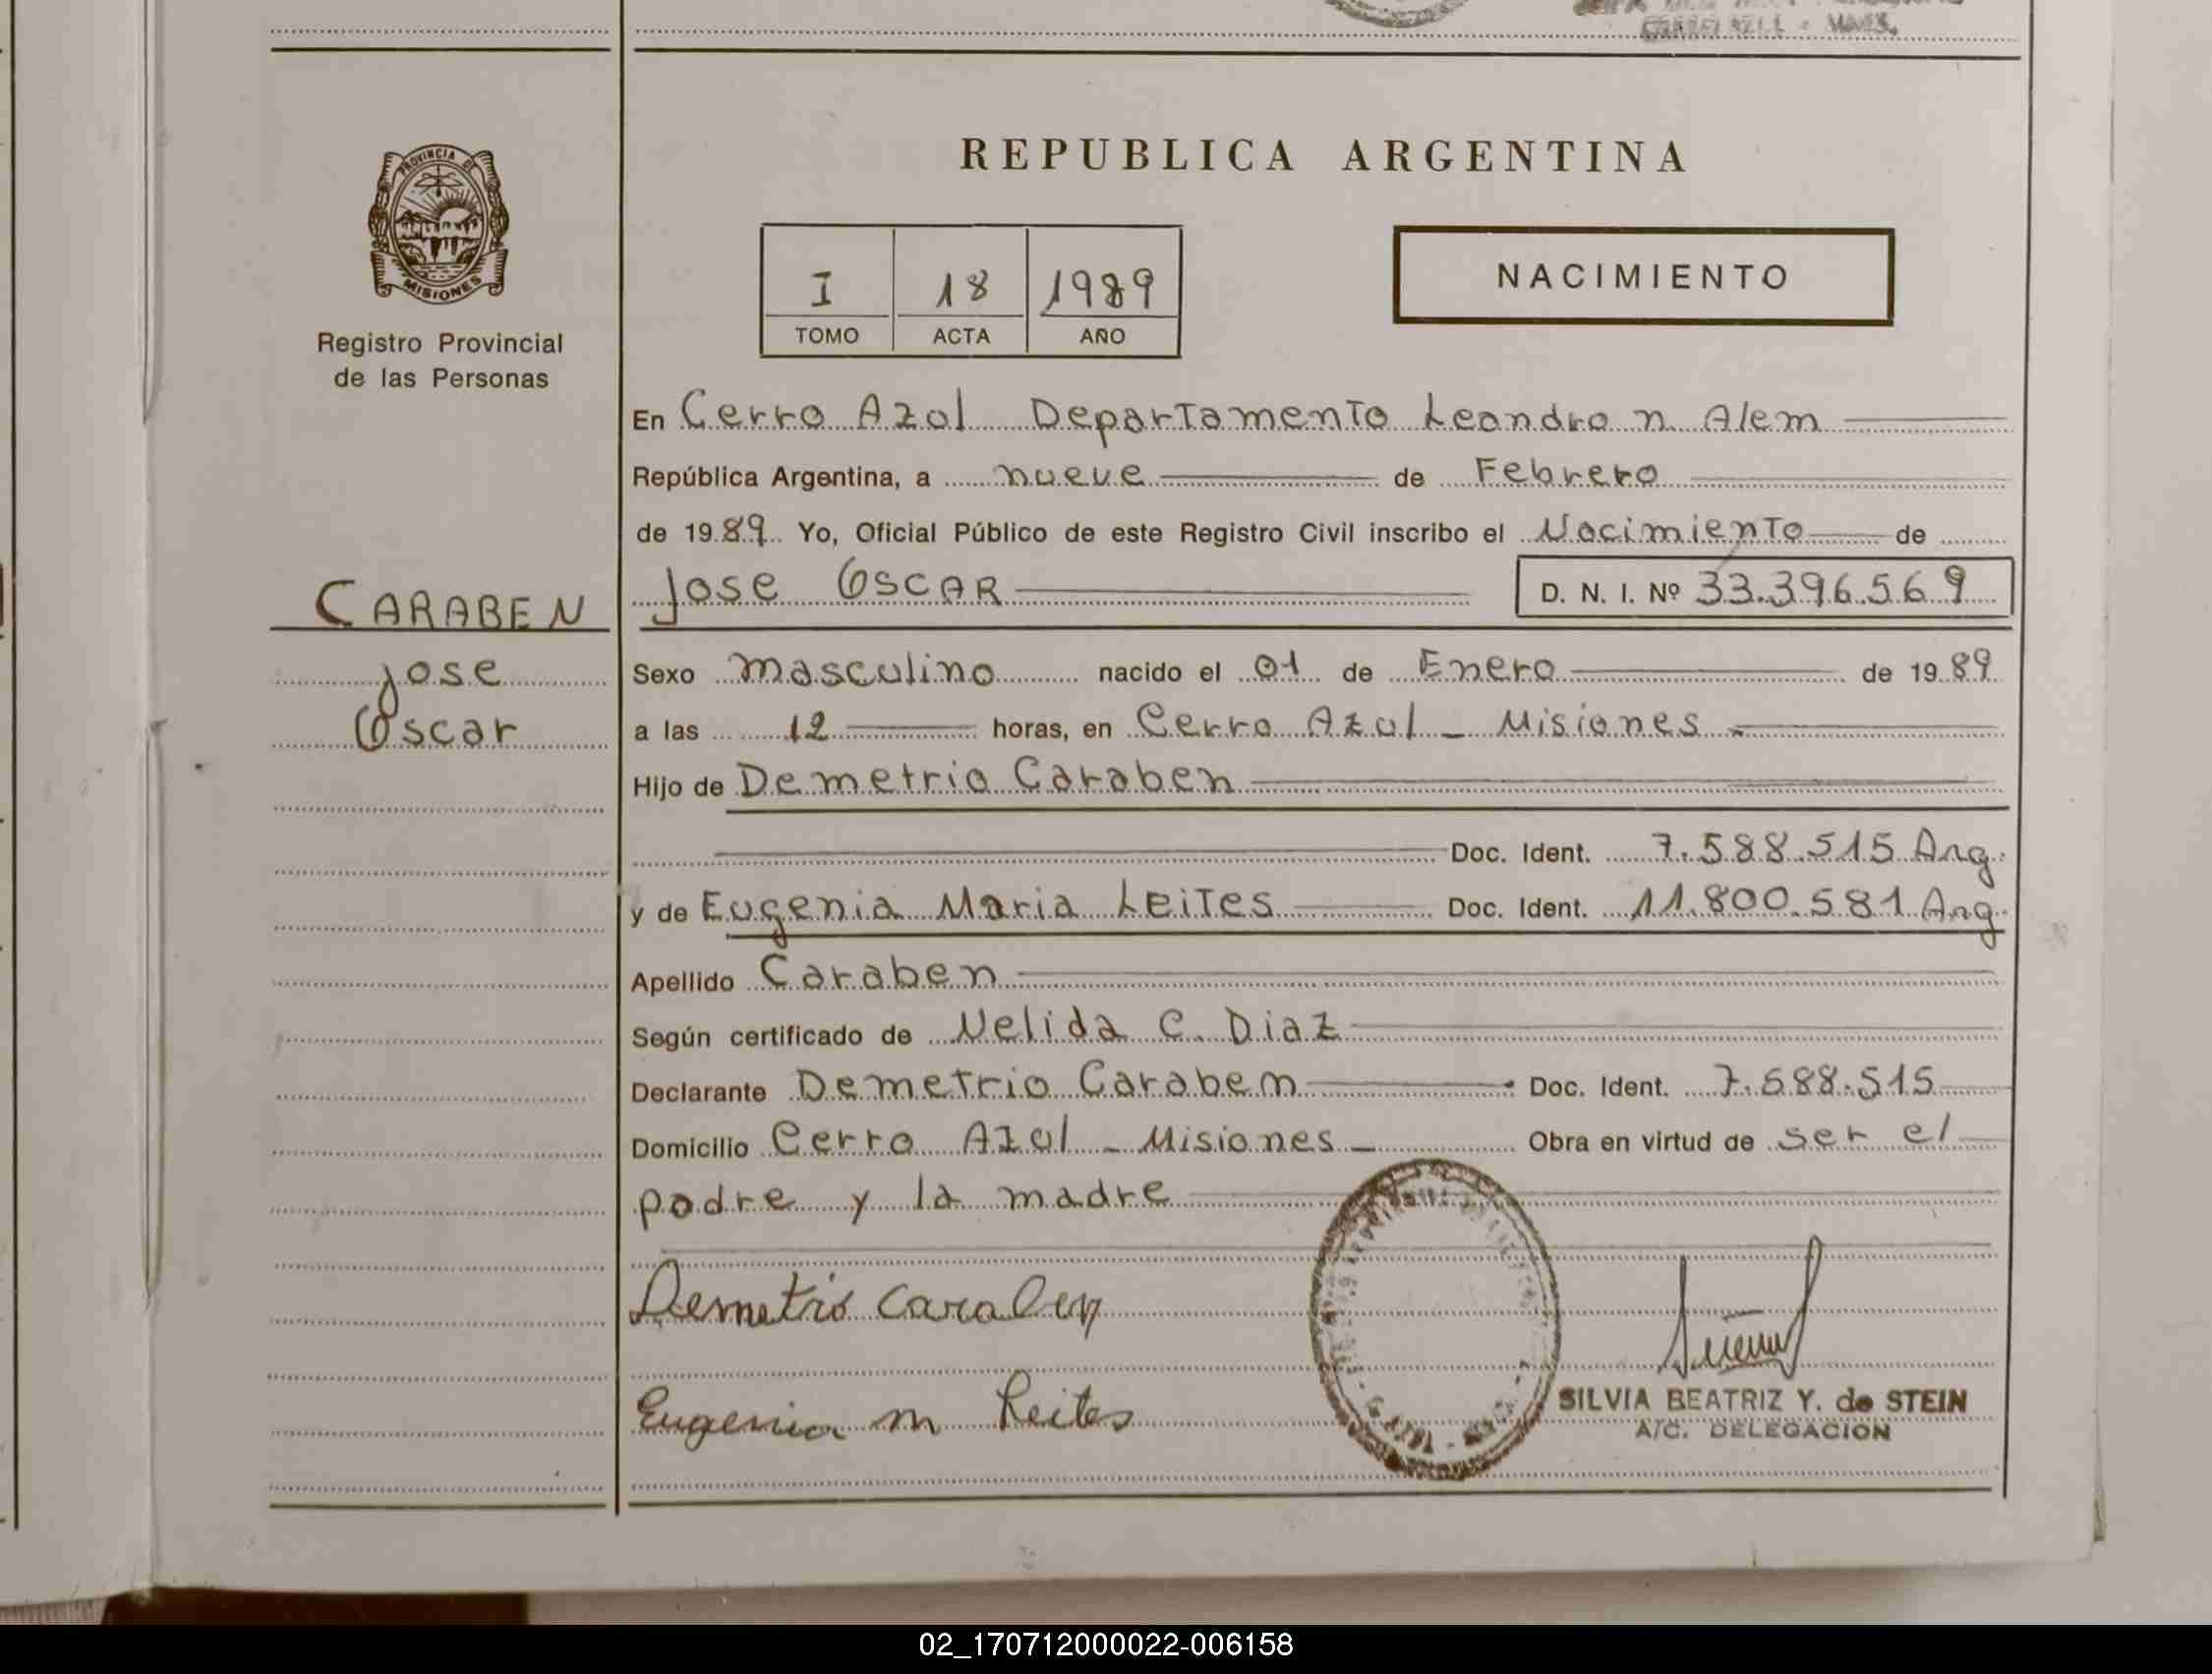 REPUBLICA ARGENTINA
PROVINCIA DE
MISIONES
Registro Provincial
de las Personas
I 18 1989
TOMO ACTA AÑO
NACIMIENTO
En Cerro Azul Departamento Leandro n. Alem
República Argentina, a nueve de Febrero
de 1989 Yo, Oficial Público de este Registro Civil inscribo el Nacimiento de
CARABEN
Jose
Oscar
Jose OSCAR D. N. I. Nº 33.396.569
Sexo masculino nacido el 01 de Enero de 1989
a las 12 horas, en Cerro Azul - Misiones
Hijo de Demetrio Caraben
Doc. Ident. 7.588.515 Arg.
y de Eugenia Maria Leites Doc. Ident. 11.800.581 Arg.
Apellido Caraben
Según certificado de Nelida C. Diaz
Declarante Demetrio Caraben Doc. Ident. 7.588.515
Domicilio Cerro Azul - Misiones - Obra en virtud de ser el
padre y la madre
Demetrio Caraben
Eugenia m Leites
SILVIA BEATRIZ Y. de STEIN
A/C. DELEGACION
02_170712000022-006158